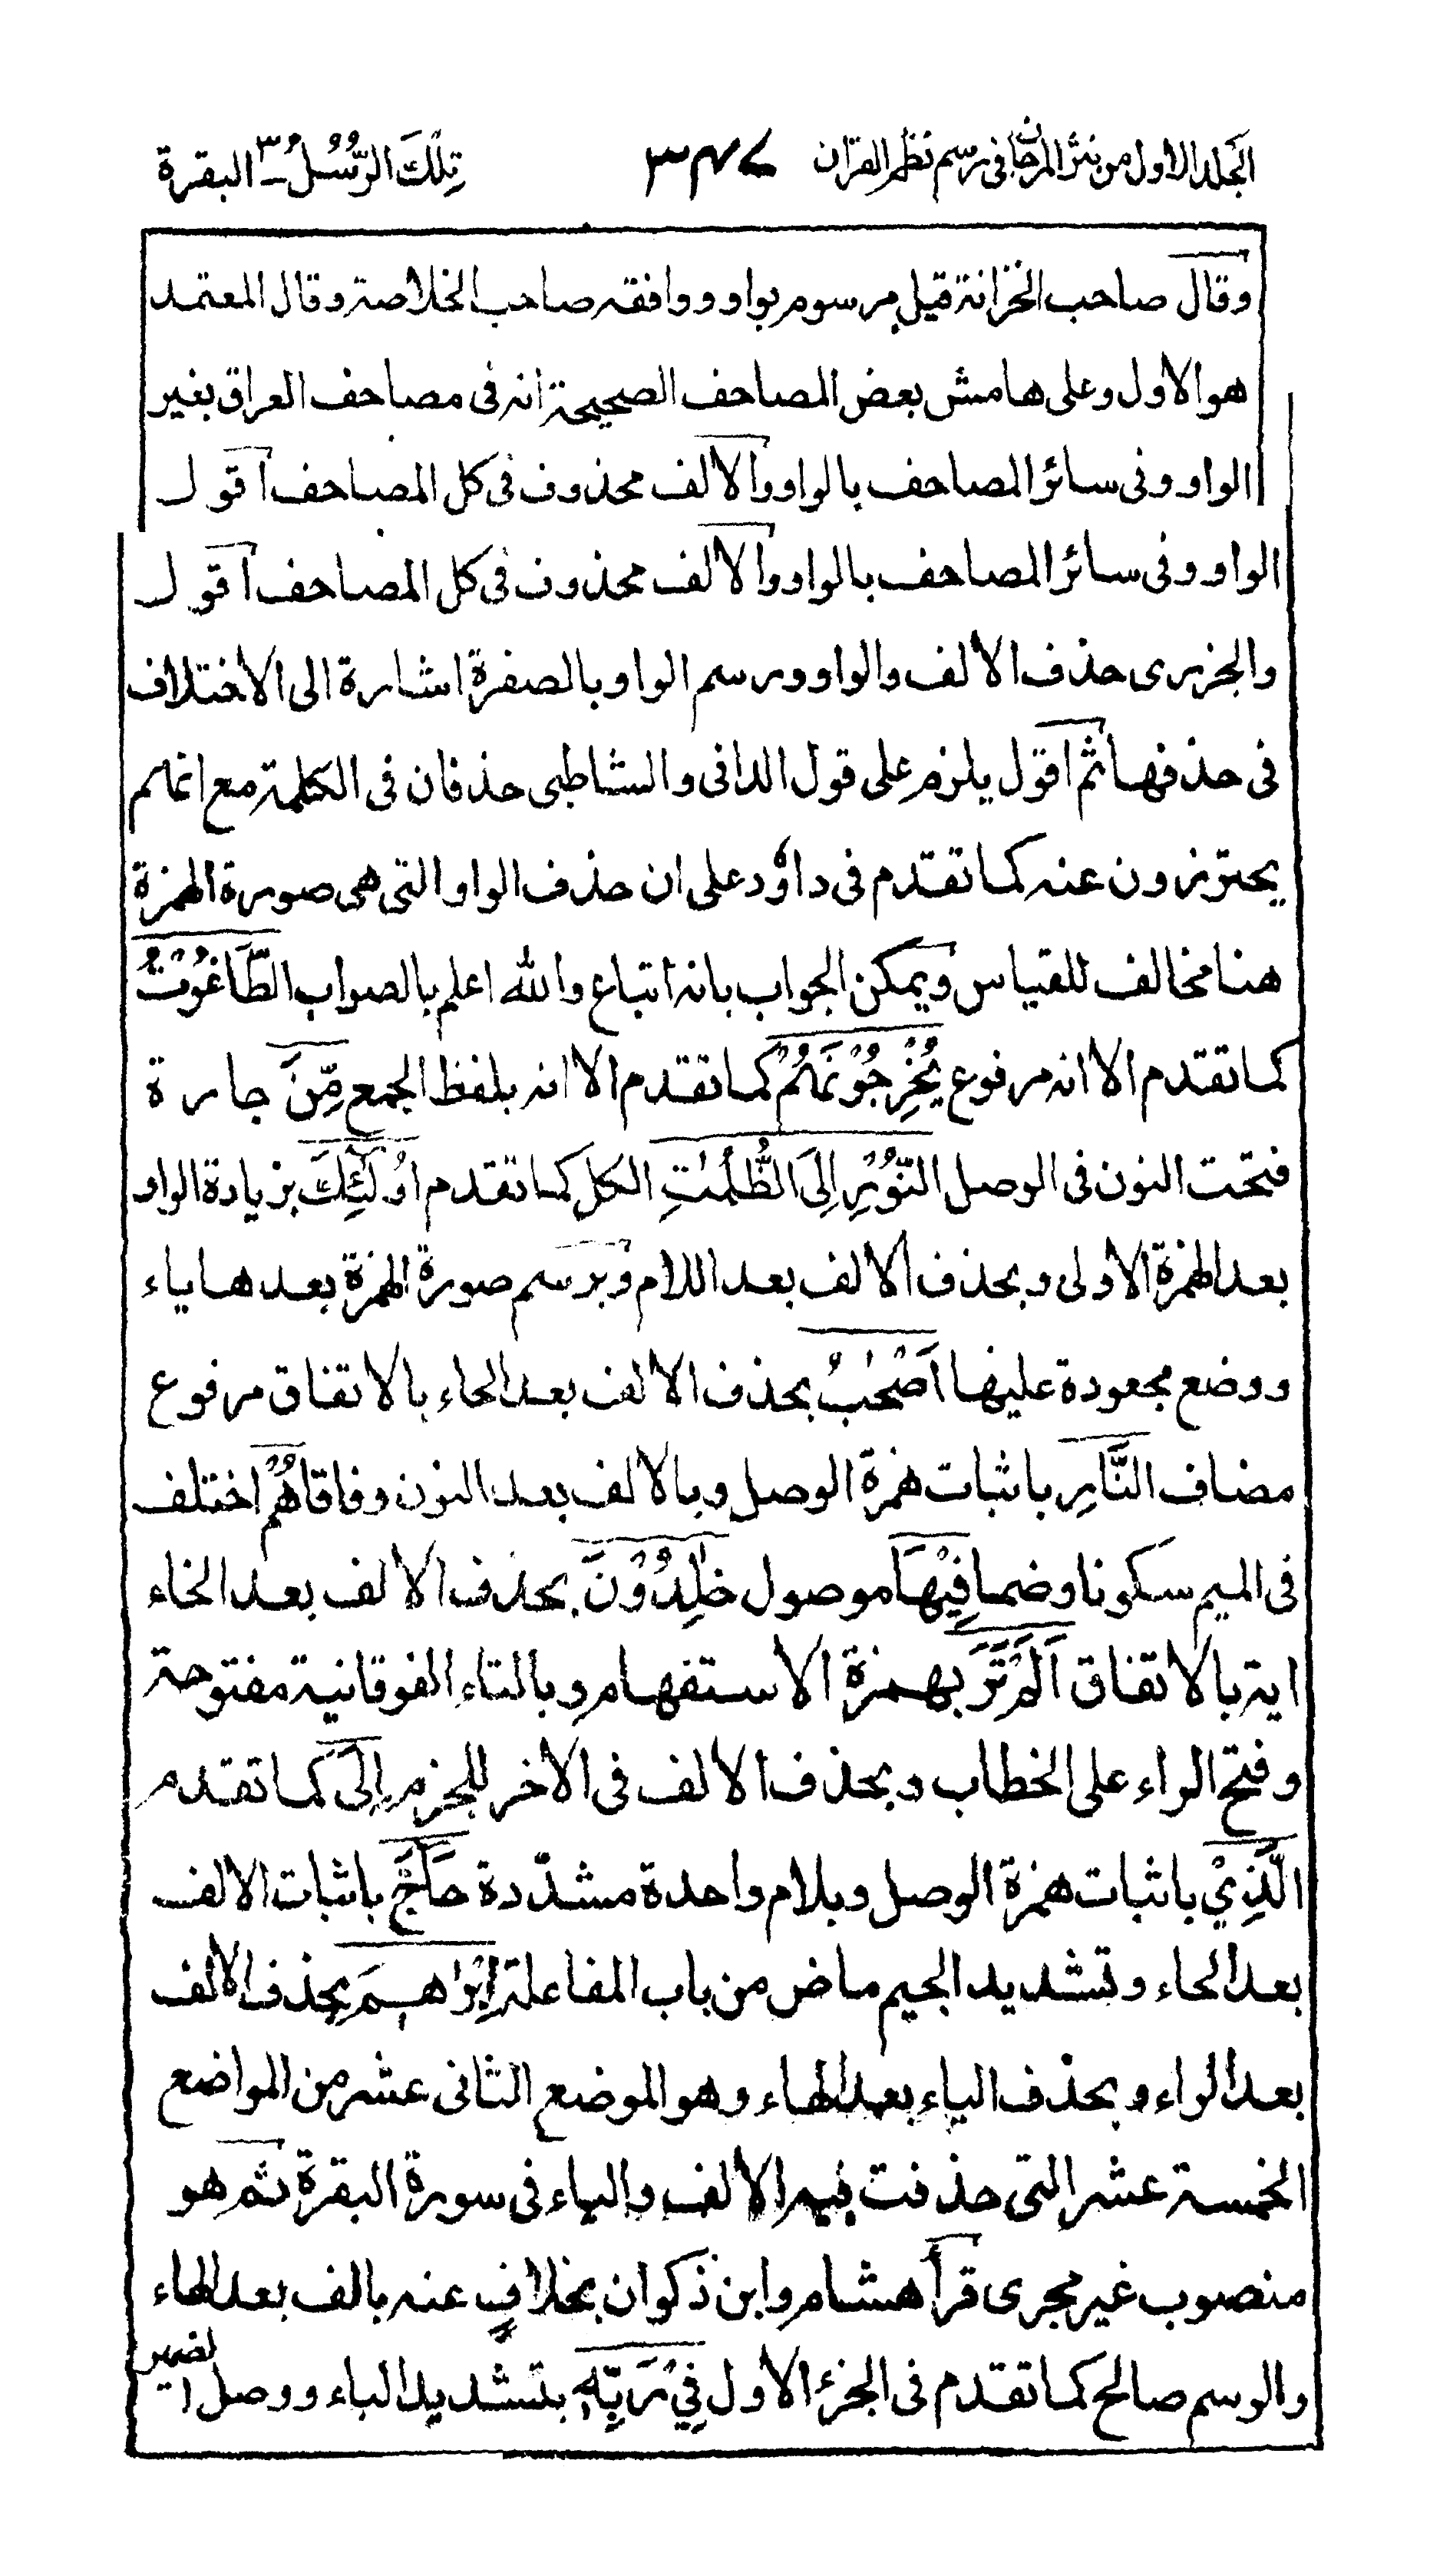 المجلد الاول من نثر المرجان فى رسم نظم القران
٣٤٧
تِلْكَ الرُّسُلُ ٣ ــ البقرة
وقال صاحب الخزانة قيل مرسوم بواو ووافقه صاحب الخلاصة وقال المعتمد
هو الاول وعلى هامش بعض المصاحف الصحيحة انه فى مصاحف العراق بغير
الواو وفى سائر المصاحف بالواو والالف محذوف فى كل المصاحف اقول
الواو وفى سائر المصاحف بالواو والالف محذوف فى كل المصاحف اقول
والجزرى حذف الالف والواو ورسم الواو بالصفرة اشارة الى الاختلاف
فى حذفها ثم اقول يلزم على قول الدانى والشاطبى حذفان فى الكلمة مع انهم
يحترزون عنه كما تقدم فى داوٗد على ان حذف الواو التى هى صورة الهمزة
هنا مخالف للقياس ويمكن الجواب بانه اتباع والله اعلم بالصواب الطَّاغُوْتُ
كما تقدم الا انه مرفوع يُخْرِجُوْنَهُمْ كما تقدم الا انه بلفظ الجمع مِّنَ جارة
فتحت النون فى الوصل النُّوْرِ اِلَى الظُّلُمٰتِ الكل كما تقدم اُولٰٓئِكَ بزيادة الواو
بعد الهمزة الاولى وبحذف الالف بعد اللام وبرسم صورة الهمزة بعدها ياء
ووضع مجعودة عليها اَصْحٰبُ بحذف الالف بعد الحاء بالاتفاق مرفوع
مضاف النَّارِ باثبات همزة الوصل وبالالف بعد النون وفاقا هُمْ اختلف
فى الميم سكونا وضما فِيْهَا موصول خٰلِدُوْنَ بحذف الالف بعد الخاء
اية بالاتفاق اَلَمْ تَرَ بهمزة الاستفهام وبالتاء الفوقانية مفتوحة
وفتح الراء على الخطاب وبحذف الالف فى الاخر للجزم اِلَى كما تقدم
الَّذِيْ باثبات همزة الوصل وبلام واحدة مشدّدة حَآجَّ باثبات الالف
بعد الحاء وتشديد الجيم ماض من باب المفاعلة اِبْرٰاهٖمَ بحذف الالف
بعد الراء وبحذف الياء بعد الهاء وهو الموضع الثانى عشر من المواضع
الخمسة عشر التى حذفت فيه الالف والياء فى سورة البقرة ثم هو
منصوب غير مجرى قرأ هشام وابن ذكوان بخلافٍ عنه بالف بعد الهاء
والرسم صالح كما تقدم فى الجزء الاول فِيْ رَبِّهٖ بتشديد الباء ووصل الضمير